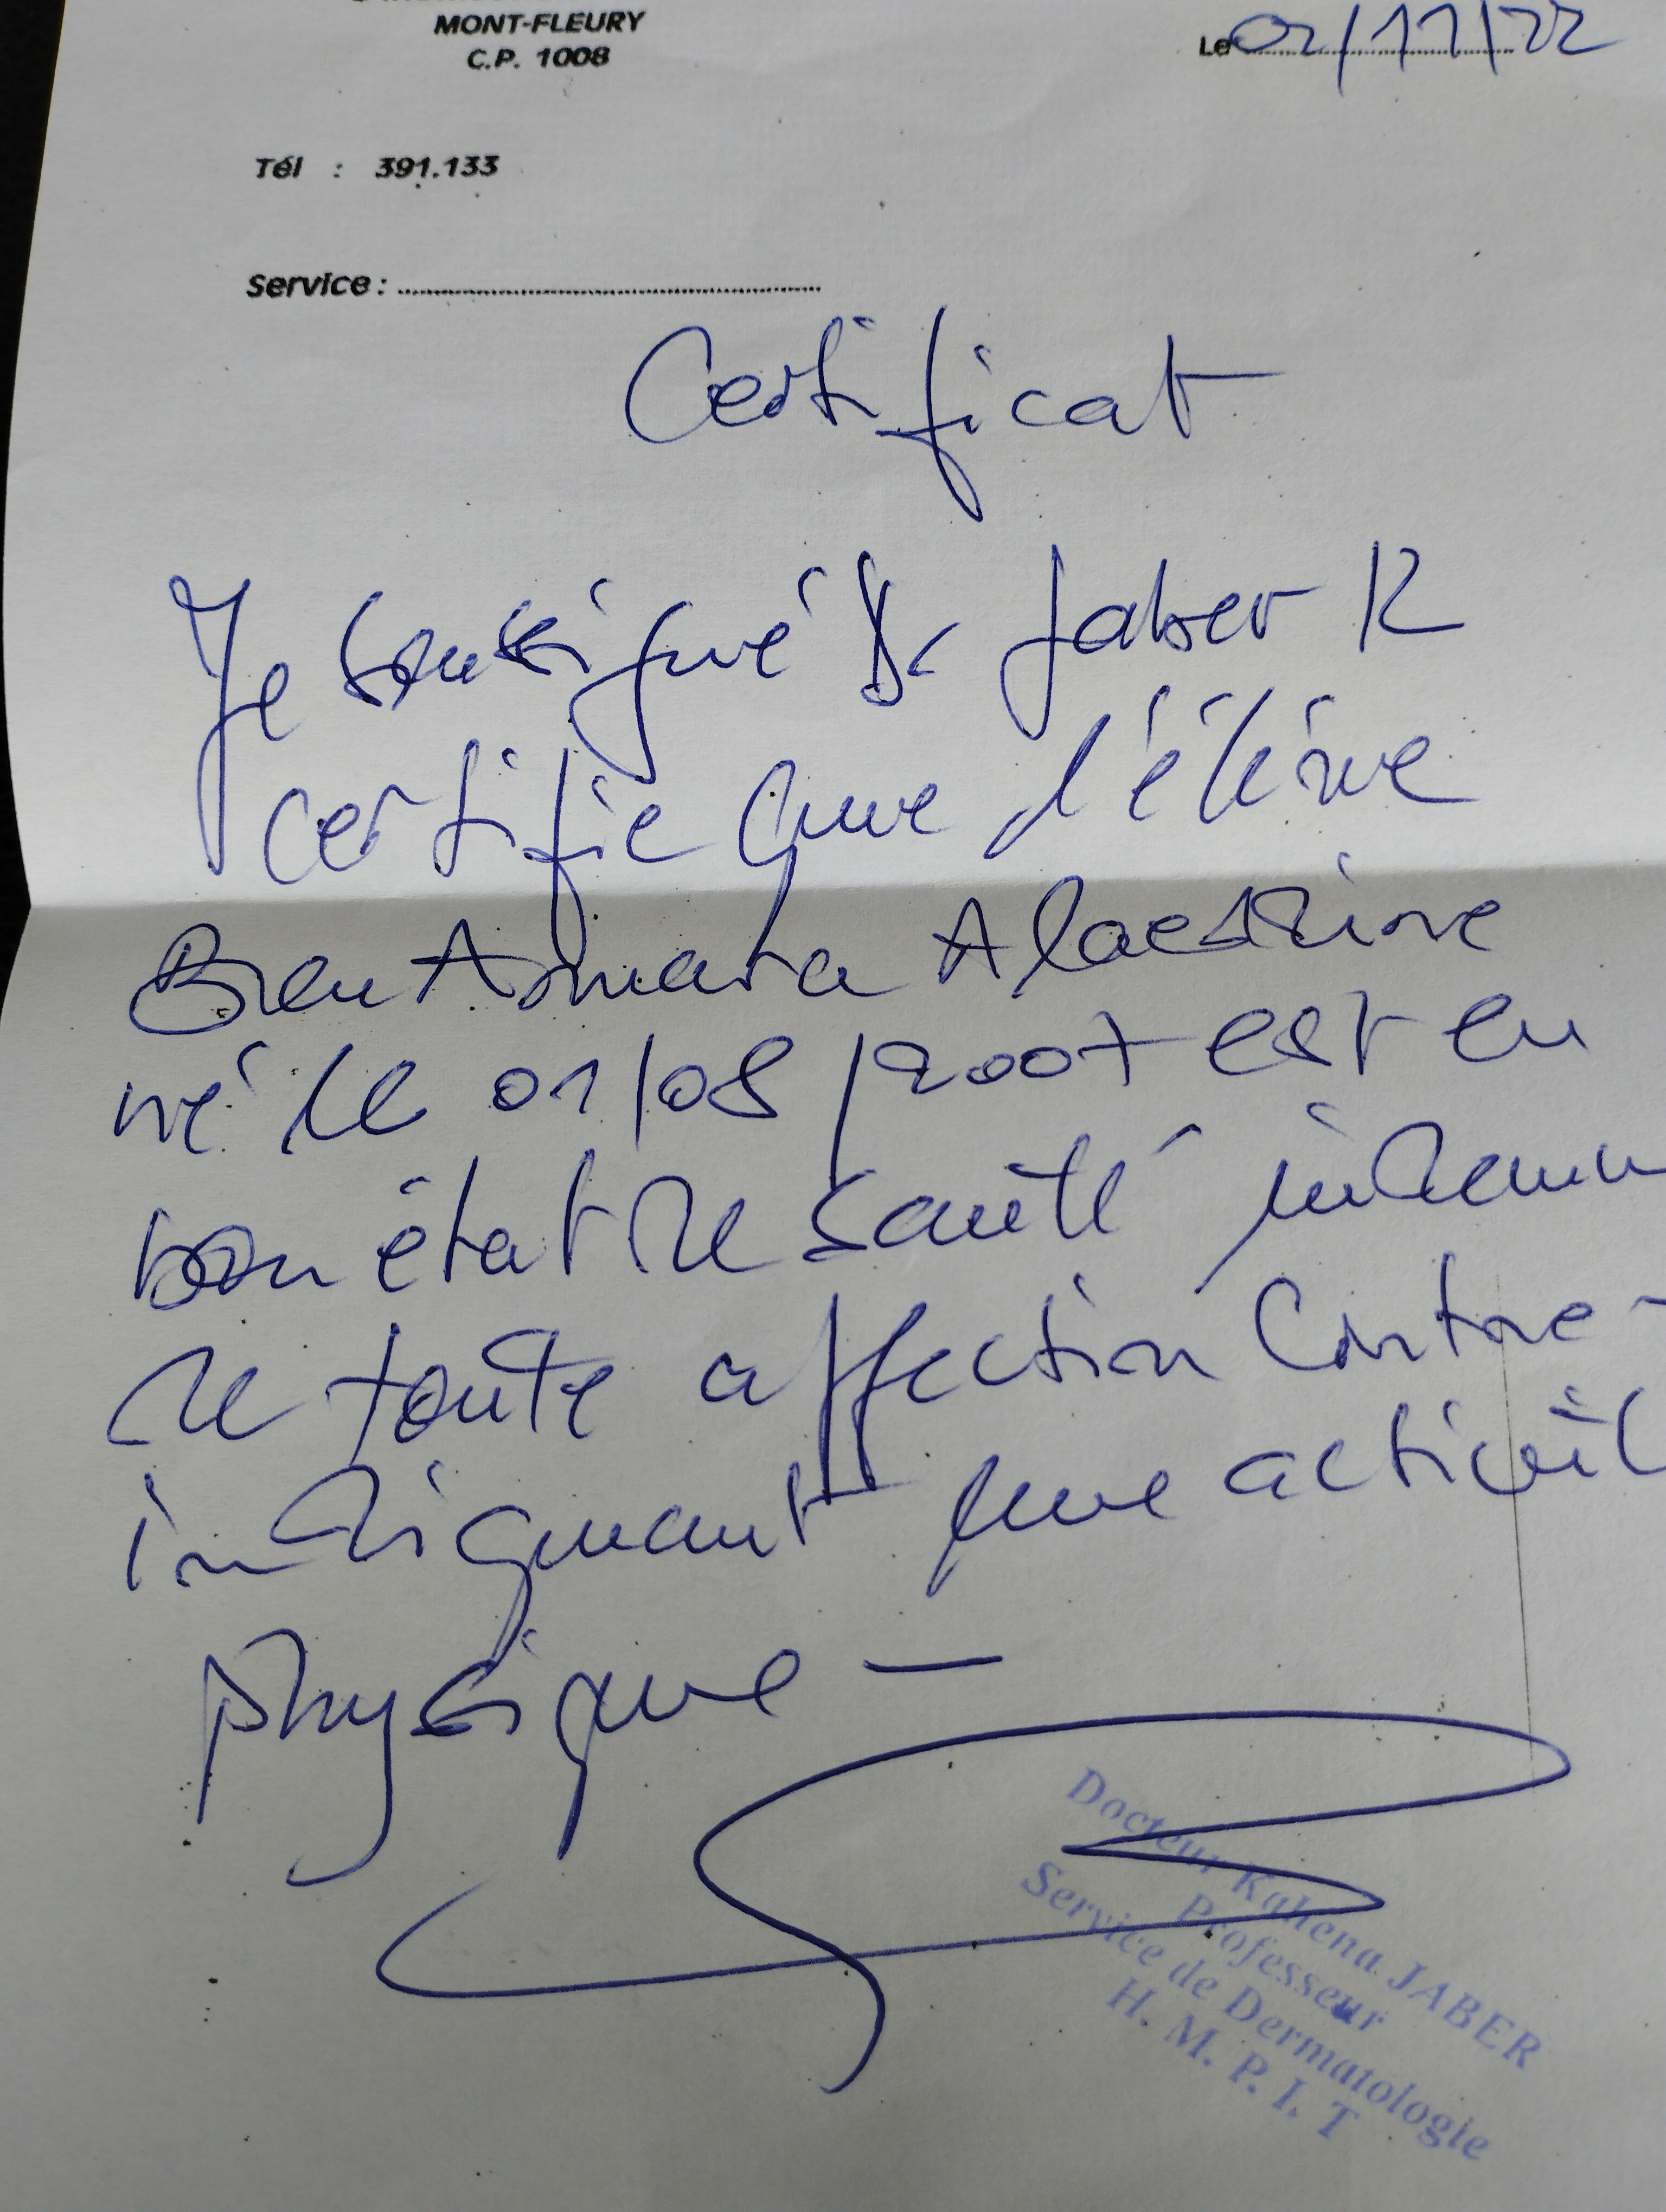 MONT-FLEURY
C.P. 1008
Le 02/11/22
Tél : 391.133
Service :
Certificat
Je soussigné Dr Jaber K
certifie que l'élève
Ben Amara Alaeddine
né le 01/08/2007 est en
bon état de santé indemn
de toute affection contre-
indiquant une activit
physique -
Docteur Kahena JABER
Professeur
Service de Dermatologie
H. M. P. I. T